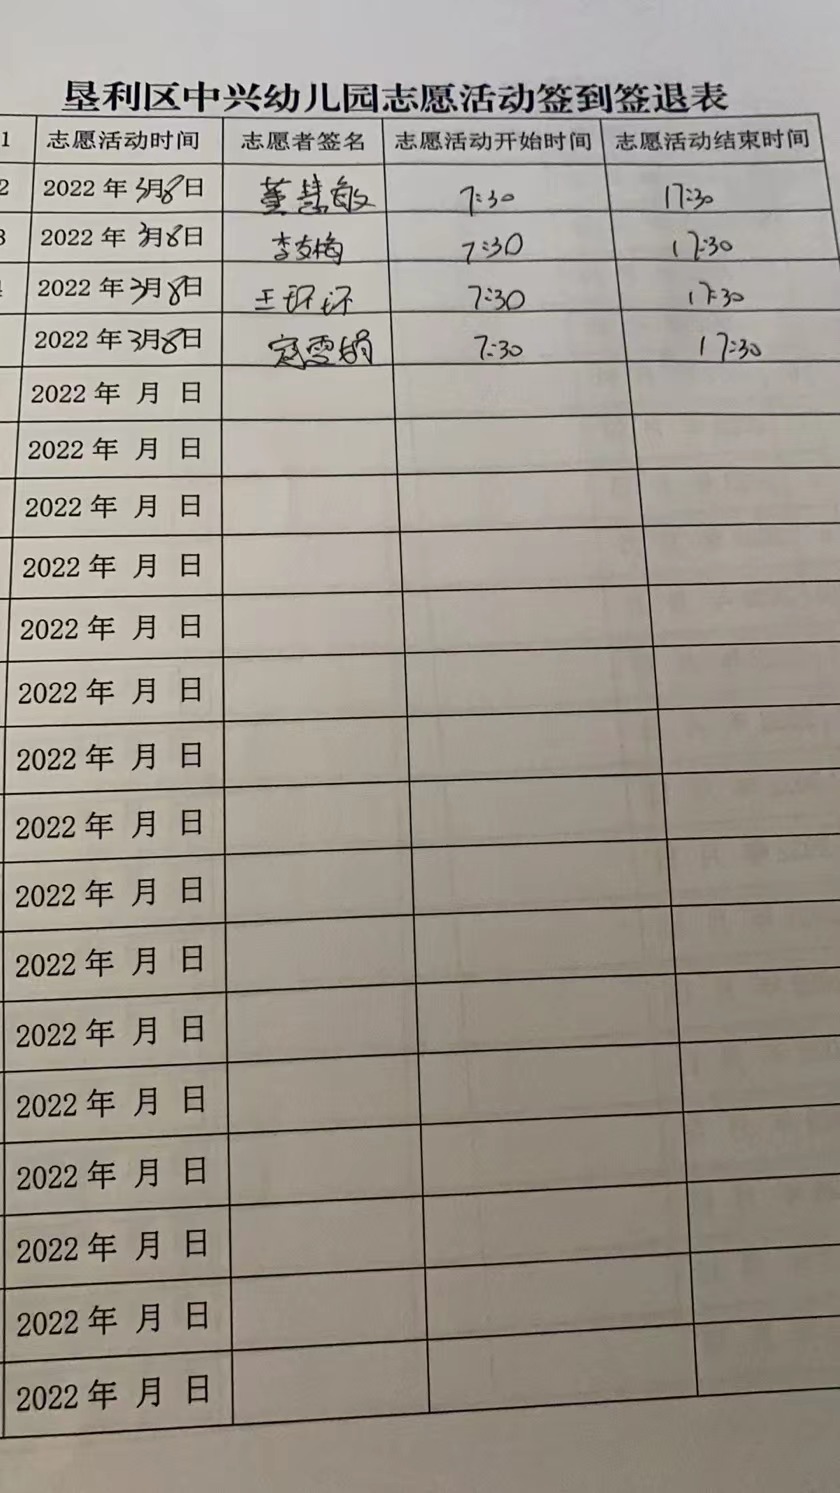 垦利区中兴幼儿园志愿活动签到签退表
1 志愿活动时间 志愿者签名 志愿活动开始时间 志愿活动结束时间
2 2022年3月8日 董慧敏 7:30 17:30
3 2022年3月8日 李友梅 7:30 17:30
2022年3月8日 王环环 7:30 17:30
2022年3月8日 寇雪娟 7:30 17:30
2022年 月 日
2022年 月 日
2022年 月 日
2022年 月 日
2022年 月 日
2022年 月 日
2022年 月 日
2022年 月 日
2022年 月 日
2022年 月 日
2022年 月 日
2022年 月 日
2022年 月 日
2022年 月 日
2022年 月 日
2022年 月 日